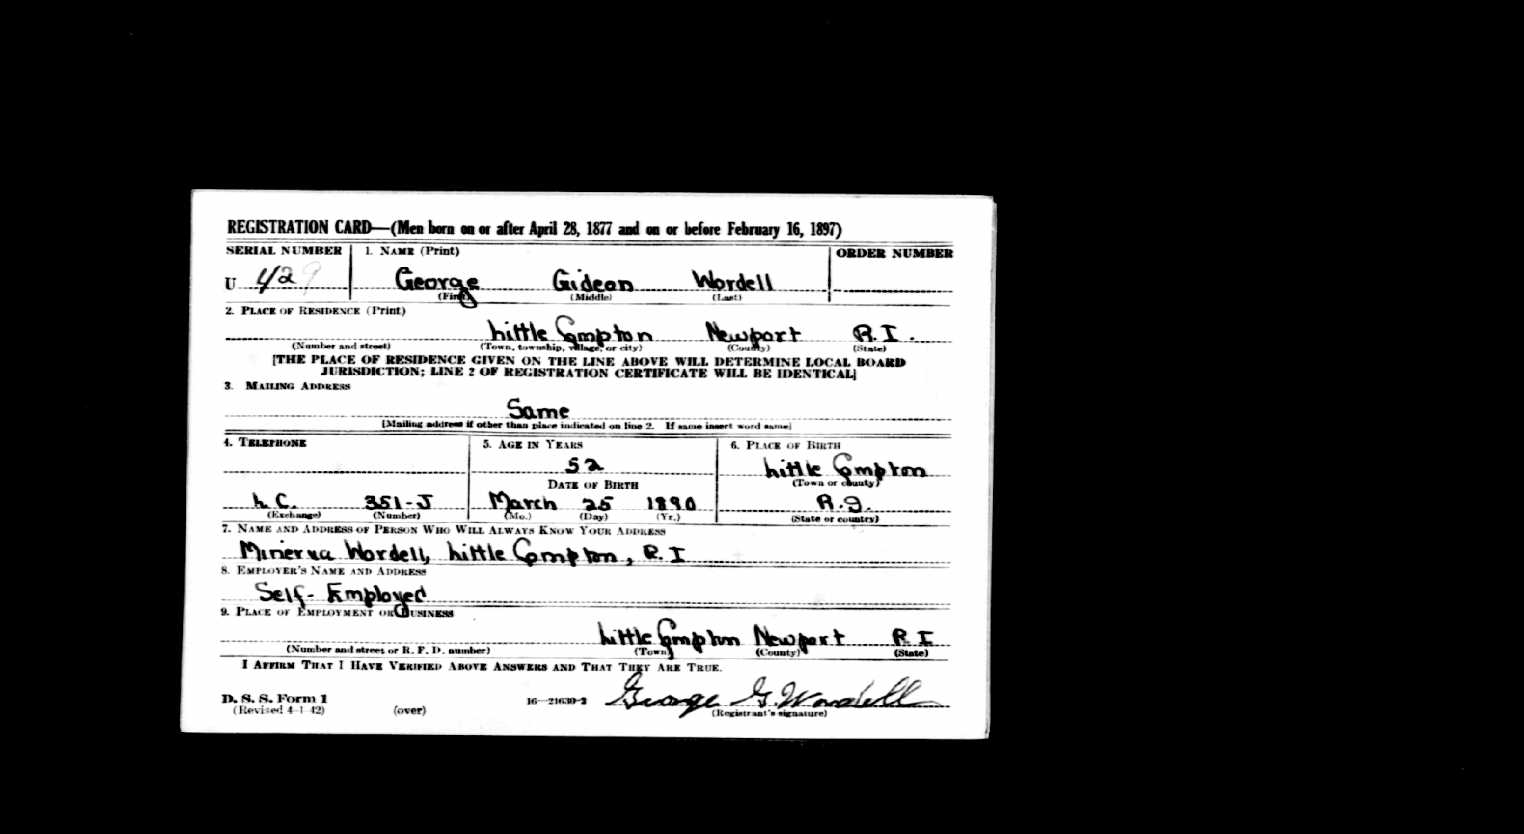 REGISTRATION CARD—(Men born on or after April 28, 1877 and on or before February 16, 1897)
SERIAL NUMBER 1. NAME (Print) ORDER NUMBER
U 429 George Gideon Wordell
(First) (Middle) (Last)
2. PLACE OF RESIDENCE (Print)
Little Compton Newport R.I.
(Number and street) (Town, township, village, or city) (County) (State)
[THE PLACE OF RESIDENCE GIVEN ON THE LINE ABOVE WILL DETERMINE LOCAL BOARD
JURISDICTION; LINE 2 OF REGISTRATION CERTIFICATE WILL BE IDENTICAL]
3. MAILING ADDRESS
Same
[Mailing address if other than place indicated on line 2. If same insert word same]
4. TELEPHONE 5. AGE IN YEARS 6. PLACE OF BIRTH
52 Little Compton
DATE OF BIRTH (Town or county)
L.C. 351-J March 25 1890 R.I.
(Exchange) (Number) (Mo.) (Day) (Yr.) (State or country)
7. NAME AND ADDRESS OF PERSON WHO WILL ALWAYS KNOW YOUR ADDRESS
Minerva Wordell, Little Compton, R.I
8. EMPLOYER'S NAME AND ADDRESS
Self-Employed
9. PLACE OF EMPLOYMENT OR BUSINESS
Little Compton Newport R I
(Number and street or R. F. D. number) (Town) (County) (State)
I AFFIRM THAT I HAVE VERIFIED ABOVE ANSWERS AND THAT THEY ARE TRUE.
D. S. S. Form 1
(Revised 4-1-42) (over) 16—21630-2 George G. Wordell
(Registrant's signature)